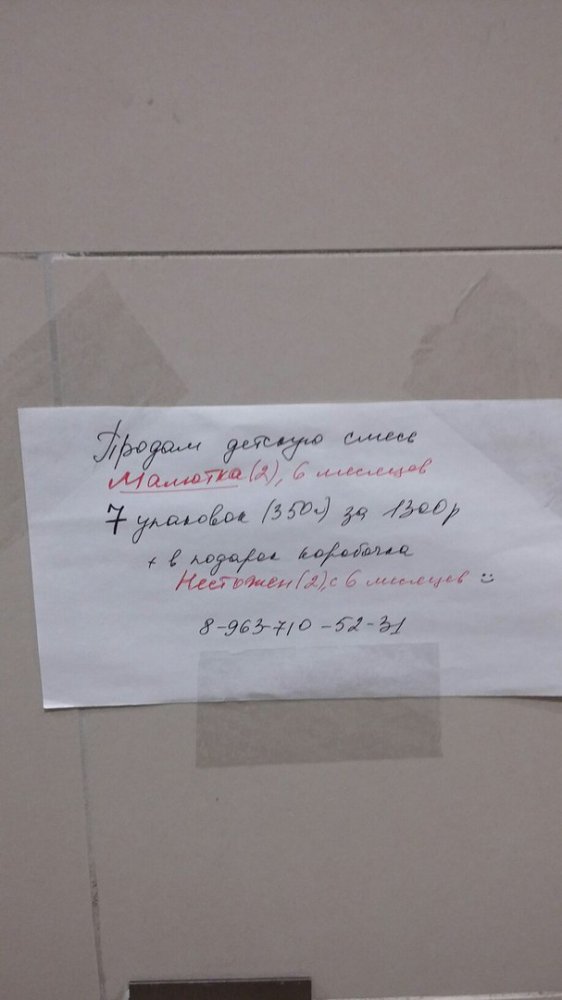 Продам детскую смесь
Малютка (2), 6 месяцов
7 упаковок (350г) за 1300р
+ в подарок коробочка
Нестожен (2), с 6 месяцев :)
8-963-710-52-31